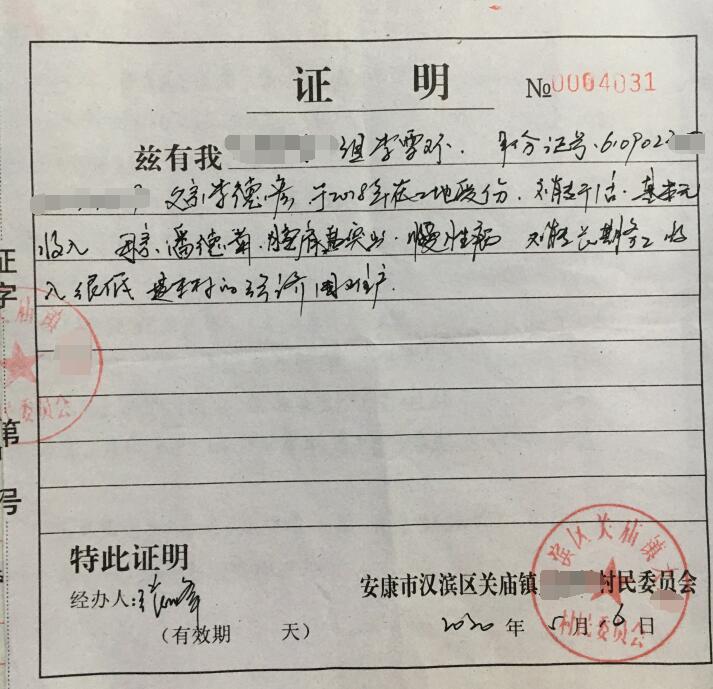 证 明
№0004031
兹有我 组李雪环. 身份证号:610902
父亲李德彦 于2018年在工地受伤. 不能干活. 基本无
收入 母亲潘德菊.腰椎盘突出.慢性病 不能长期务工 收
入很低 是本村的经济困难户.
证字
第
号
特此证明
经办人:
(有效期 天)
安康市汉滨区关庙镇 村民委员会
2020 年 5 月 6 日
滨区关庙镇
村民委员会
关庙镇
民委员会